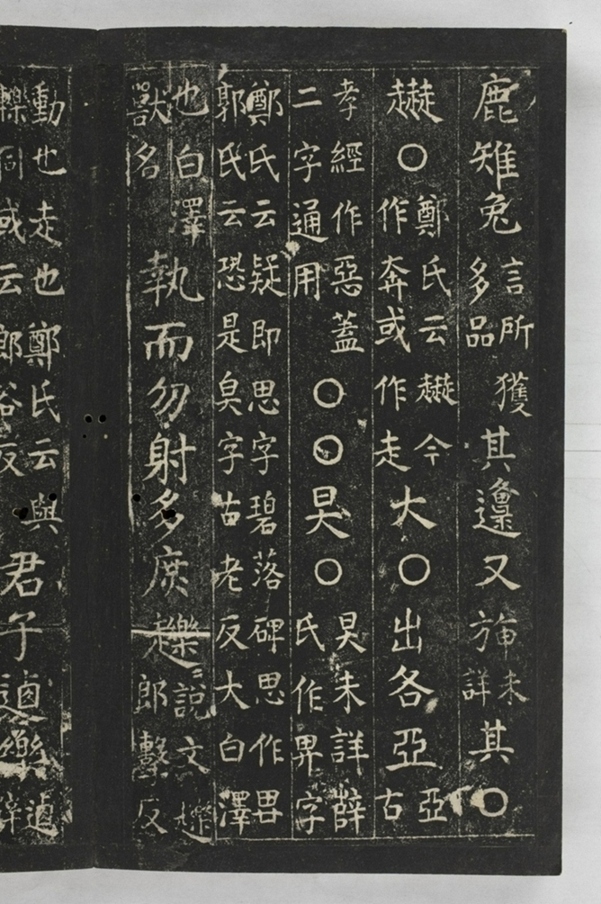 鹿雉兔言所獲多品其邍又旃未詳其〇
〇鄭氏云今作奔或作走大〇出各亞亞古
孝經作惡蓋二字通用〇〇昊〇昊未詳薛氏作畀字
鄭氏云疑即思字碧落碑思作郭氏云恐是臭字古老反大白澤
也白澤獸名執而勿射多庶趮說文趮郎擊反
動也走也鄭氏云與轢同或云郎谷反君子逌樂逌辭